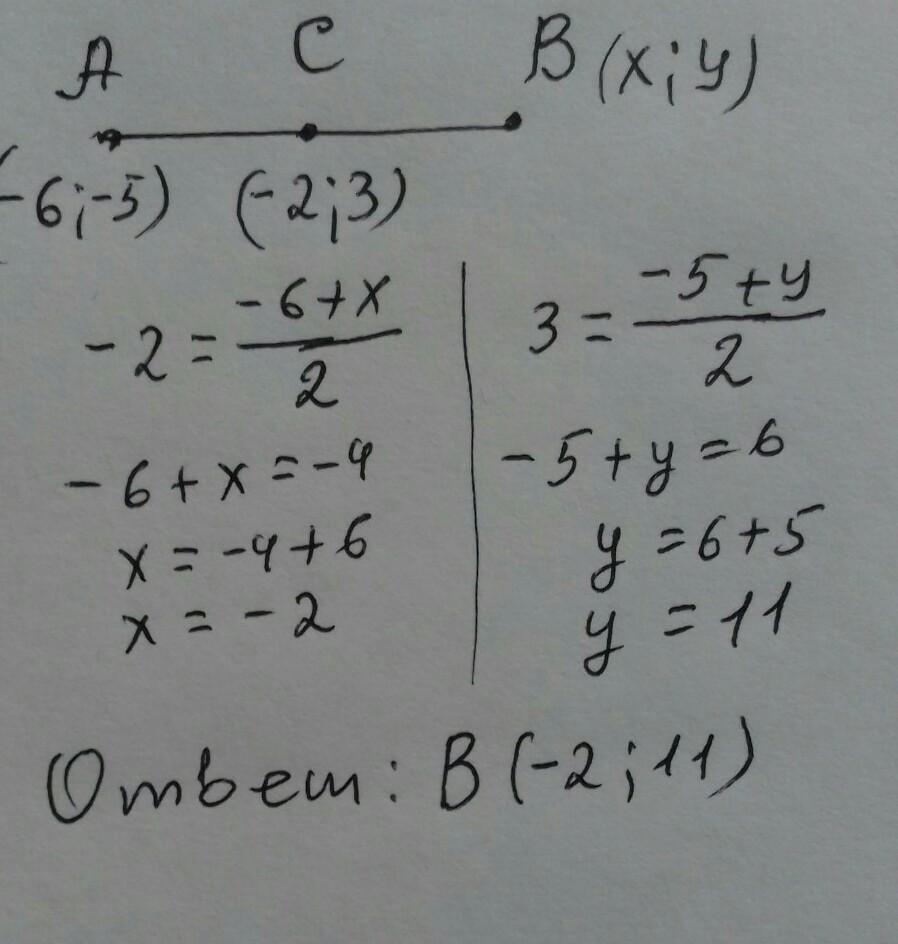 A C B (x; y)
(-6; -5) (-2; 3)
-2 = (-6 + x)/2
-6 + x = -4
x = -4 + 6
x = -2
3 = (-5 + y)/2
-5 + y = 6
y = 6 + 5
y = 11
Ответ: B (-2; 11)